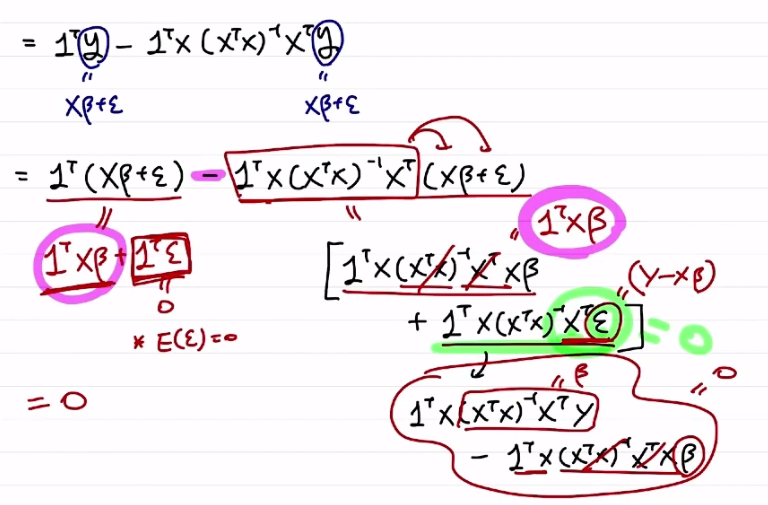 = 1ᵀy − 1ᵀX (XᵀX)⁻¹ Xᵀy
" "
Xβ+ε Xβ+ε
= 1ᵀ(Xβ+ε) − 1ᵀX(XᵀX)⁻¹Xᵀ(Xβ+ε)
" " " 1ᵀXβ
1ᵀXβ + 1ᵀε [1ᵀX(XᵀX)⁻¹XᵀXβ
" " (Y−Xβ)
0 + 1ᵀX(XᵀX)⁻¹Xᵀε] = 0
* E(ε)=0
" β " 0
= 0 1ᵀX(XᵀX)⁻¹XᵀY
− 1ᵀX(XᵀX)⁻¹XᵀXβ